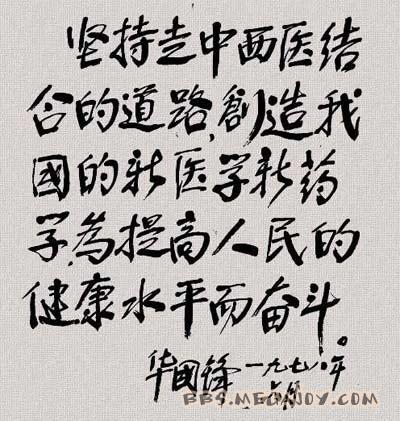 坚持走中西医结
合的道路,創造我
國的新医学新药
学,为提高人民的
健康水平而奋斗。
华國锋 一九七八年
六月
BBS.MEGAJOY.COM